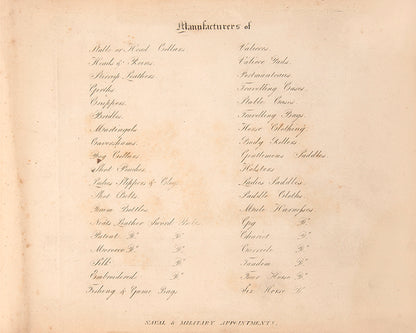 Manufacturers of
Stable or Head Collars
Heads & Reins
Stirrup Leathers
Girths
Cruppers
Bridles
Martingals
Cavershams
Dog Collars
Shot Pouches
Ladies Slippers & Clogs
Shot Belts
Dram Bottles
Neats Leather Sword Belts
Patent Do. Do.
Morocco Do. Do.
Silk Do.
Embroidered Do.
Fishing & Game Bags
Valises
Valice Pads
Portmanteaus
Travelling Cases
Stable Cases
Travelling Bags
Horse Clothing
Body Rollers
Gentlemens Saddles
Holsters
Ladies Saddles
Saddle Cloths
Mule Harnesses
Gig Do.
Chariot Do.
Curricle Do.
Tandem Do.
Four Horse Do.
Six Horse Do.
NAVAL & MILITARY APPOINTMENTS.